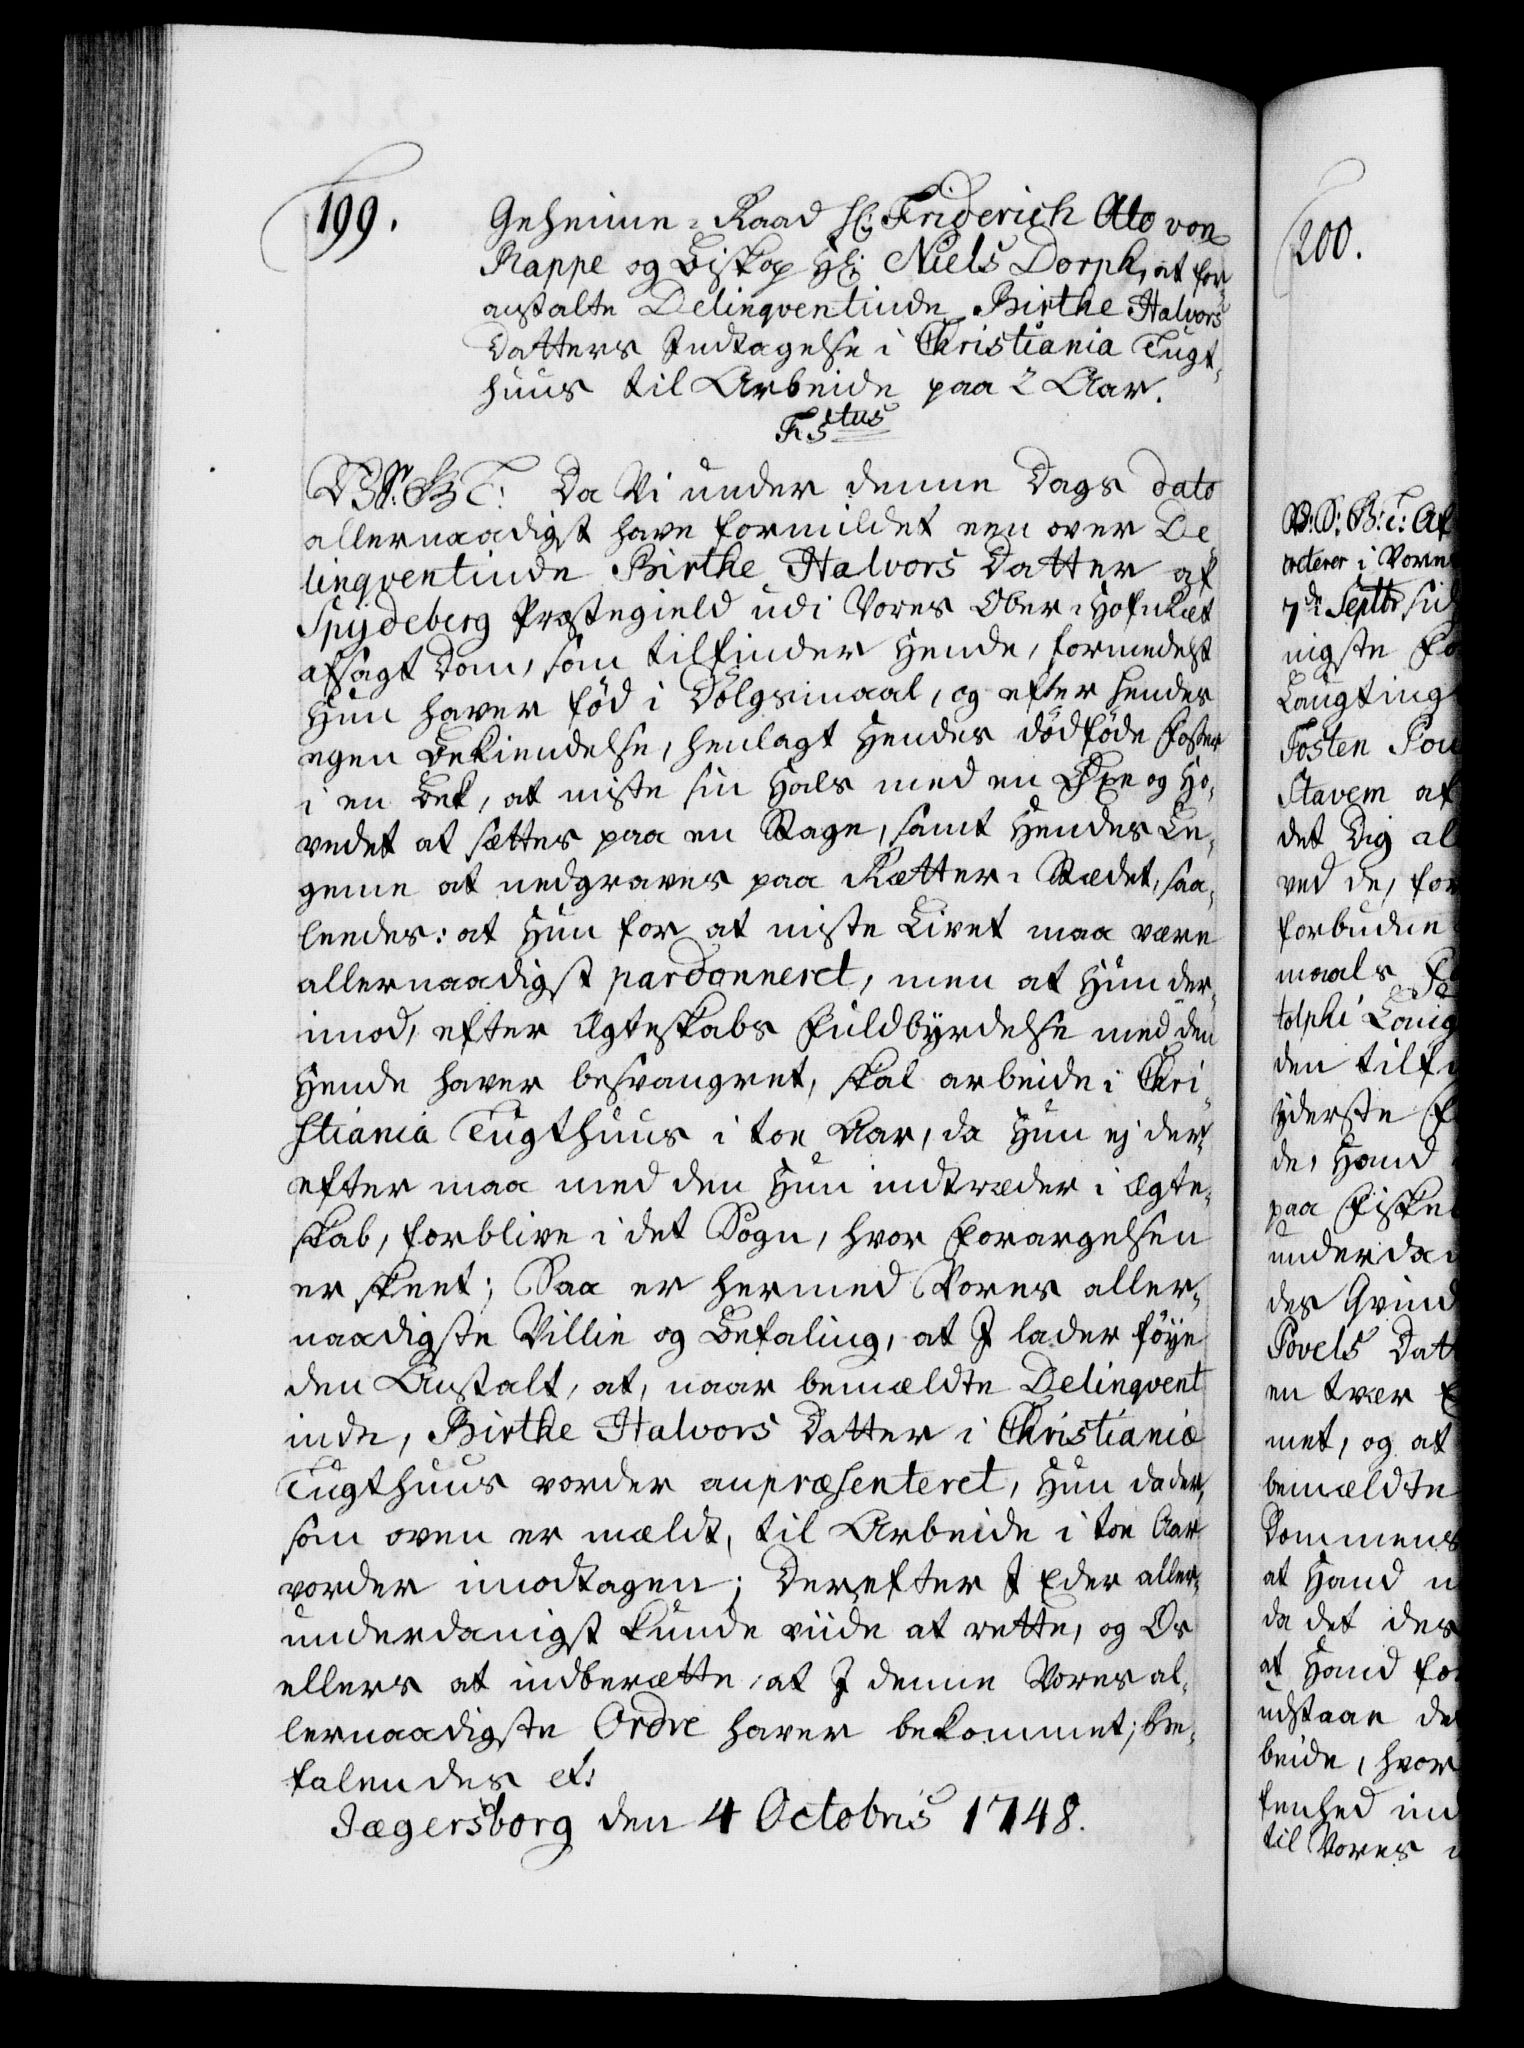 199.
Geheime-Raad Hr: Friderich Otto von
Rappe og Biskop Hr: Niels Dorph, at for-
anstalte Delinqventinde Birthe Halvors
Datters Indtagelse i Christiania Tugt-
huus til Arbeide paa 2 Aar.
F 5tus
V. S. G. T: Da Vi under denne Dags dato
allernaadigst have formildet een over De-
linqventinde Birthe Halvors Datter af
Spydeberg Præstegield udi Vores Ober-Hof-Ræt
afsagt Dom, som tilfinder Hende, formedelst
Hun haver fød i Dølgsmaal, og efter hendes
egen Bekiendelse, henlagt Hendes dødføde Foster
i en Bek, at miste sin Hals med en Øxe og Ho-
vedet at sættes paa en Stage, samt Hendes Le-
geme at nedgraves paa Rætter-Stædet, saa-
leedes: at Hun for at miste Livet maa være
allernaadigst pardonneret, men at Hun der-
imod, efter Ægteskabs Fuldbyrdelse med den
Hende haver besvangret, skal arbeide i Chri-
stiania Tugthuus i toe Aar, da Hun ej der-
efter maa med den Hun indtræder i Ægte-
skab, forblive i det Sogn, hvor Forargelsen
er skeet; Saa er hermed Vores aller-
naadigste Villie og Befaling, at I lader føye
den Anstalt, at, naar bemældte Delinqvent-
inde, Birthe Halvors Datter i Christianiæ
Tugthuus vorder anpræsenteret, Hun da der,
som oven er mældt, til Arbeide i toe Aar
vorder imodtagen; Derefter I Eder aller-
underdanigst kunde viide at rette, og Os
ellers at indberætte, at I denne Vores al-
lernaadigste Ordre haver bekommet; Be-
falendes et:
Jægersborg den 4 Octobris 1748.
200.
V: S: G: T: At
orderer i Vores
7de Septbr sid
nigste Fo
Laugting
Tosten Pou
Stavem at
det Dig al
ved de, for
forbudne
maals
tolphi Laug
den tilf
yderste F
de, Hand
paa Fisker
underda
des Qvind
Povels Datt
en tvær
met, og at
bemældte
Dommens
at Hand
da det des
at Hand for
udstaae de
beide, hvor
fenhed ind
til Vores